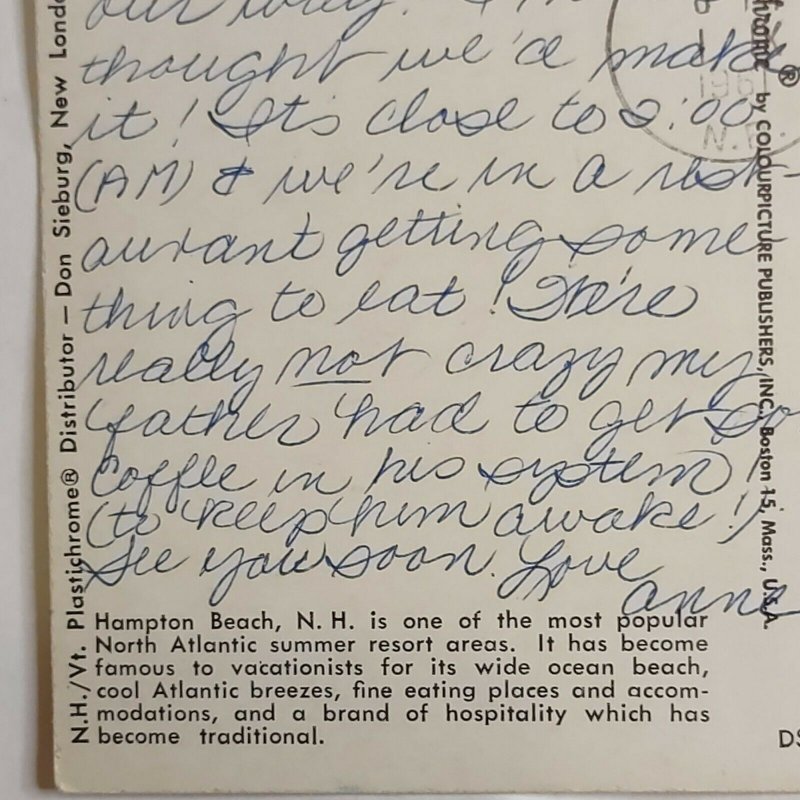 our way!
thought we'd make
it! It's close to 2:00
(AM) & we're in a rest-
aurant getting some
thing to eat! We're
really not crazy my
father had to get so
coffee in his system
(to keep him awake!)
See you soon. Love
Anne
Hampton Beach, N. H. is one of the most popular
North Atlantic summer resort areas. It has become
famous to vacationists for its wide ocean beach,
cool Atlantic breezes, fine eating places and accom-
modations, and a brand of hospitality which has
become traditional.
N.H./Vt. Plastichrome® Distributor — Don Sieburg, New Lond
hrome® by COLOURPICTURE PUBLISHERS, INC., Boston 15, Mass., U.S.A.
196
N.
DS